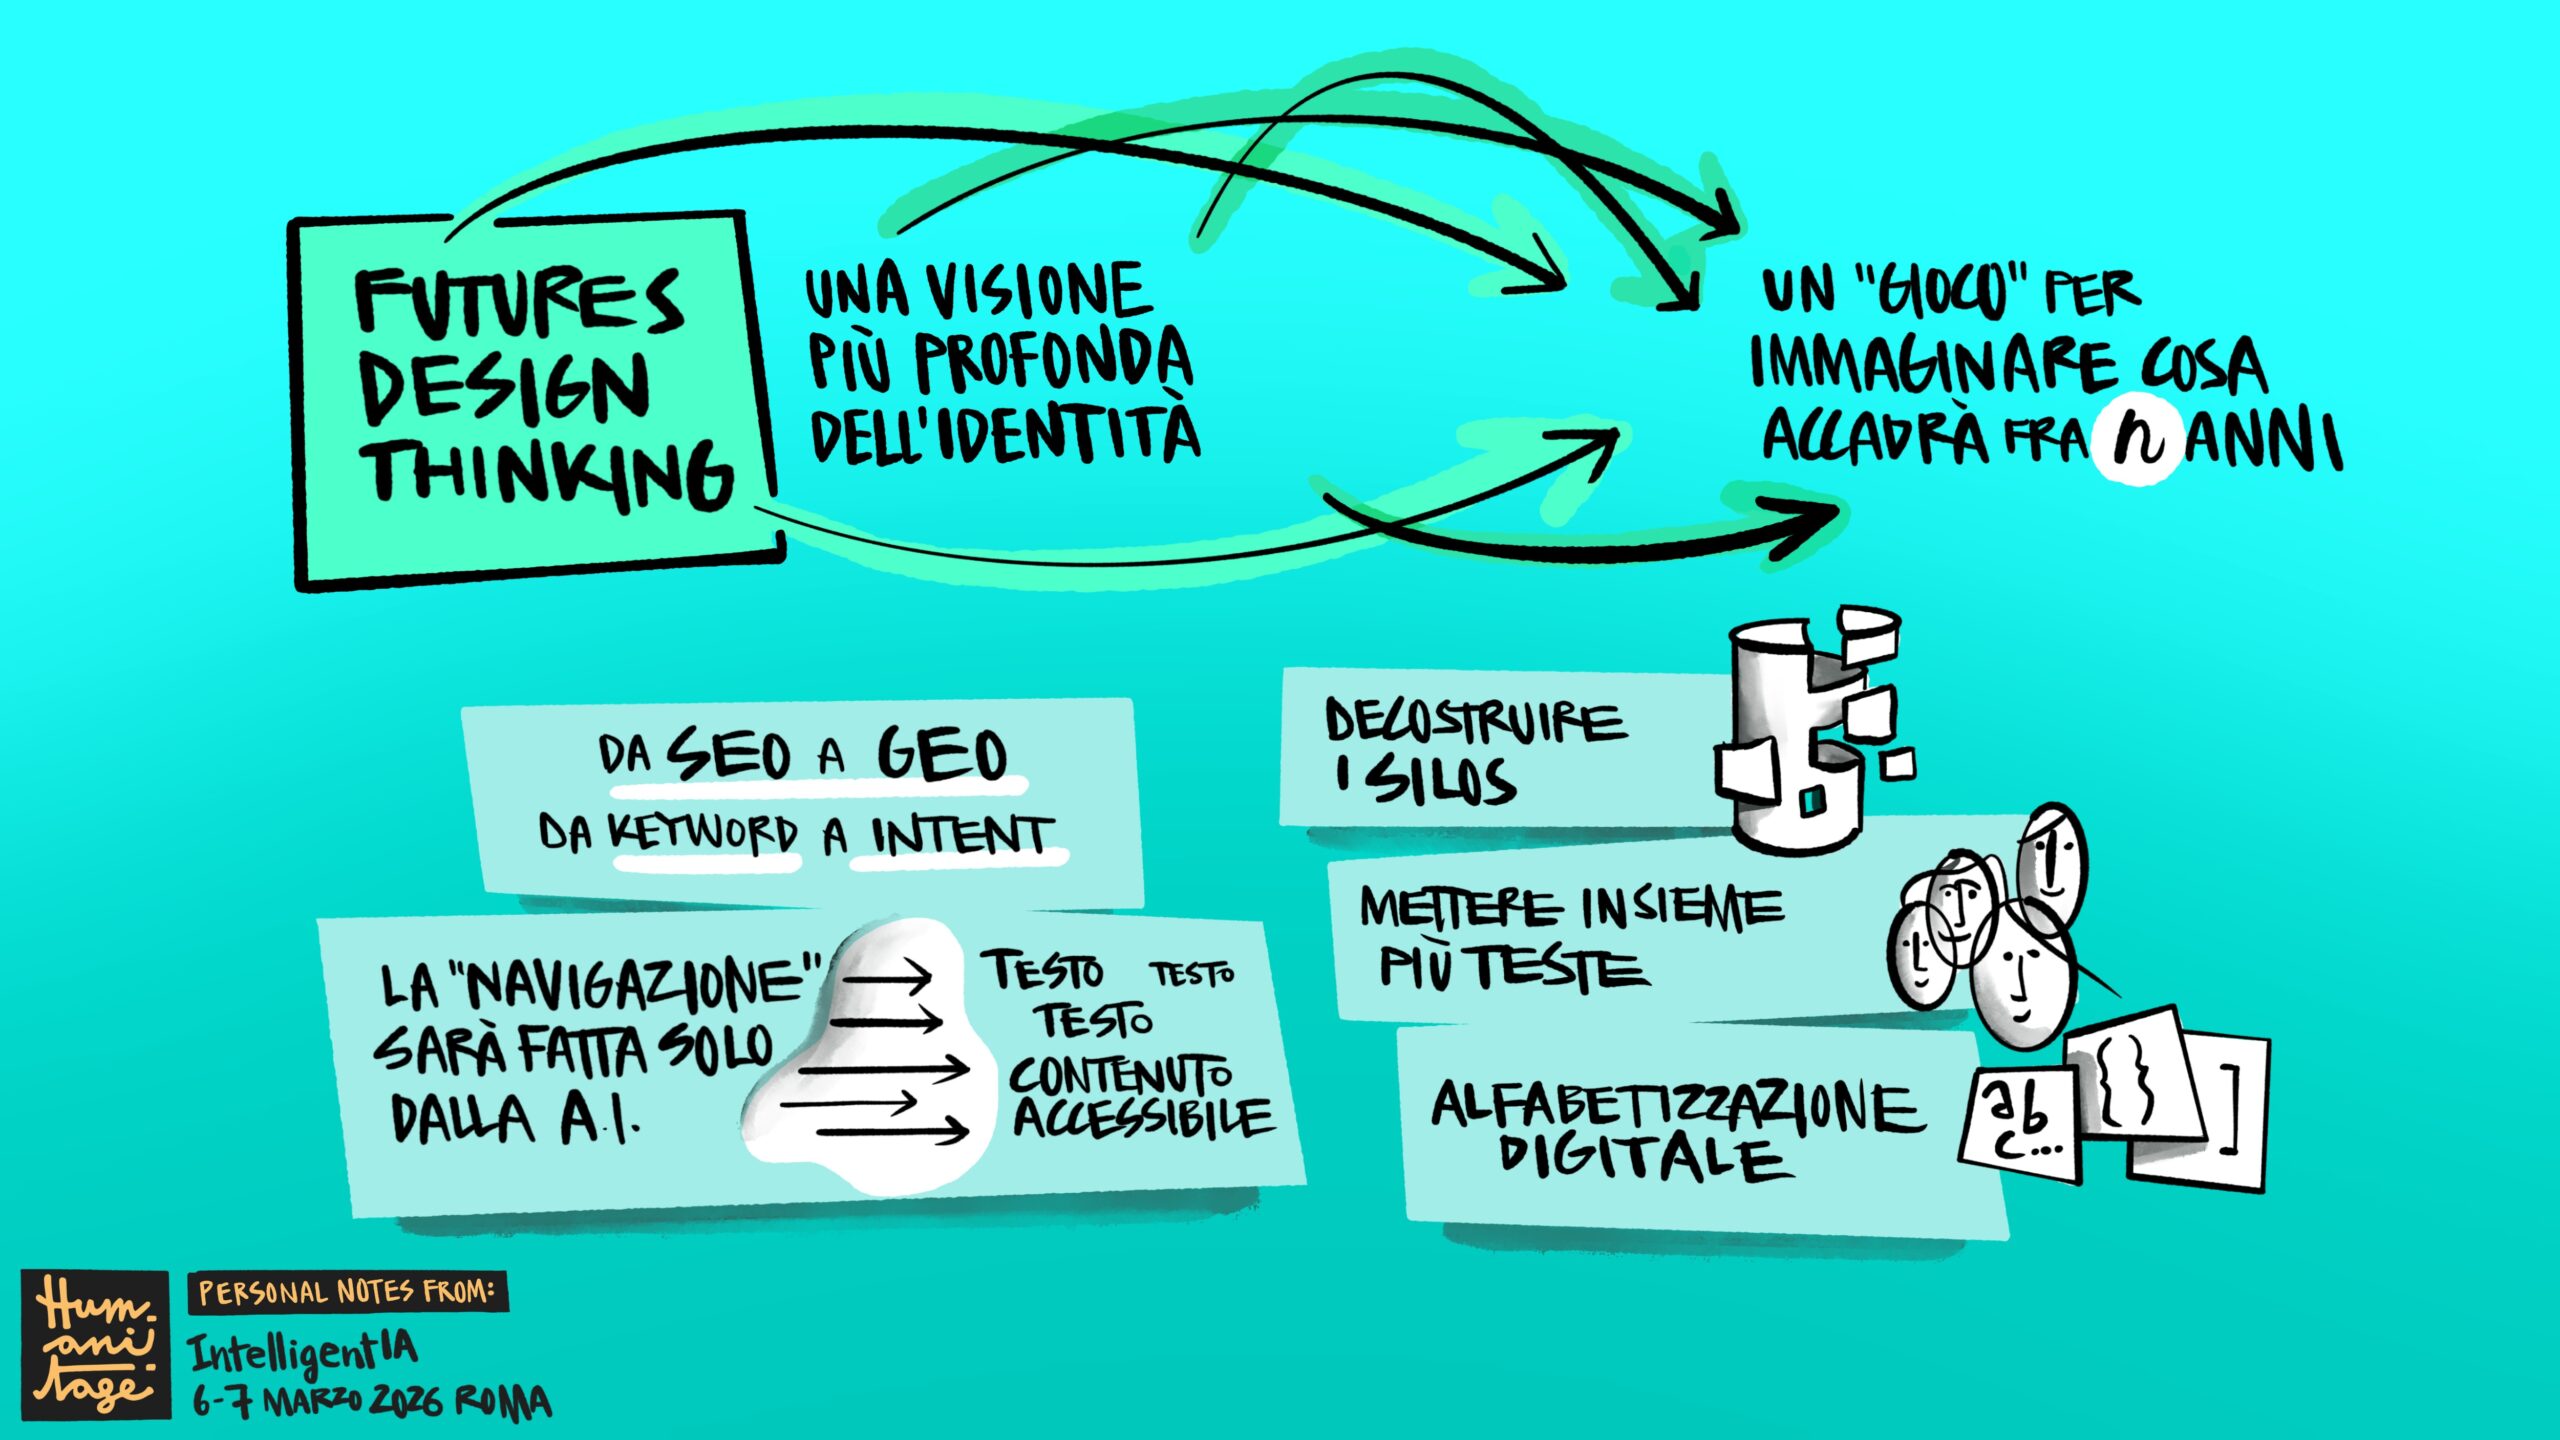 FUTURES
DESIGN
THINKING
UNA VISIONE
PIÙ PROFONDA
DELL'IDENTITÀ
UN "GIOCO" PER
IMMAGINARE COSA
ACCADRÀ FRA n ANNI
DA SEO A GEO
DA KEYWORD A INTENT
LA "NAVIGAZIONE"
SARÀ FATTA SOLO
DALLA A.I.
TESTO TESTO
TESTO
CONTENUTO
ACCESSIBILE
DECOSTRUIRE
I SILOS
METTERE INSIEME
PIÙ TESTE
ALFABETIZZAZIONE
DIGITALE
ab
c...
{}
]
Hum-
ani-
tage
PERSONAL NOTES FROM:
IntelligentIA
6-7 MARZO 2026 ROMA